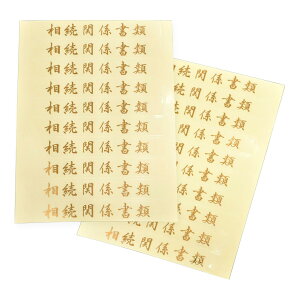 相続関係書類
相続関係書類
相続関係書類
相続関係書類
相続関係書類
相続関係書類
相続関係書類
相続関係書類
相続関係書類
相続関係書類
続関係書類
続関係書類
関係書類
関係書類
関係書類
関係書類
関係書類
関係書類
関係書類
相続関係書類